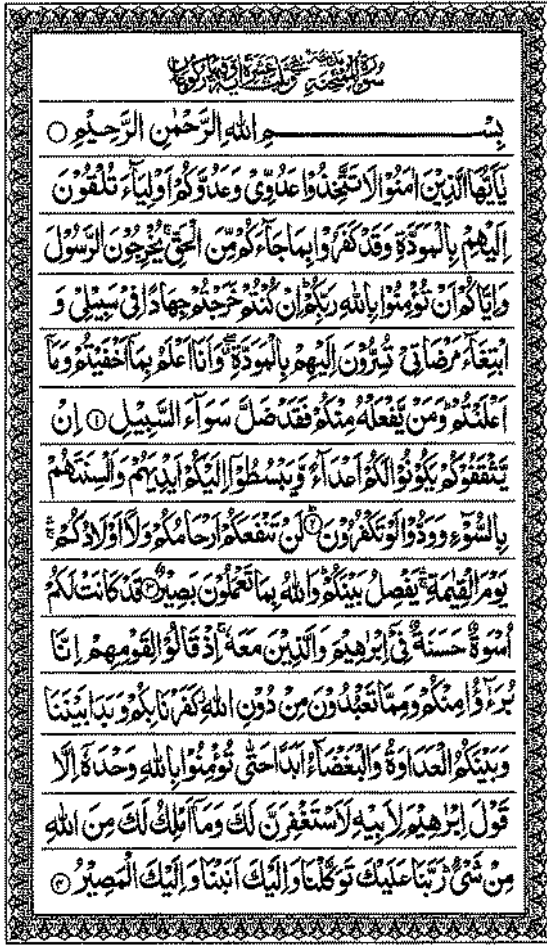 سُوْرَةُ الْمُمْتَحِنَةِ مَدَنِيَّةٌ وَّهِيَ ثَلٰثَ عَشْرَةَ اٰيَةً وَّفِيْهَا رُكُوْعَانِ
بِسْــــــــــمِ اللّٰهِ الرَّحْمٰنِ الرَّحِيْمِ ○
يٰۤاَيُّهَا الَّذِيْنَ اٰمَنُوْا لَا تَتَّخِذُوْا عَدُوِّىْ وَعَدُوَّكُمْ اَوْلِيَآءَ تُلْقُوْنَ
اِلَيْهِمْ بِالْمَوَدَّةِ وَقَدْ كَفَرُوْا بِمَا جَآءَكُمْ مِّنَ الْحَقِّ ۚ يُخْرِجُوْنَ الرَّسُوْلَ
وَاِيَّاكُمْ اَنْ تُؤْمِنُوْا بِاللّٰهِ رَبِّكُمْ ؕ اِنْ كُنْتُمْ خَرَجْتُمْ جِهَادًا فِىْ سَبِيْلِىْ وَ
ابْتِغَآءَ مَرْضَاتِىْ تُسِرُّوْنَ اِلَيْهِمْ بِالْمَوَدَّةِ ۖ وَاَنَا اَعْلَمُ بِمَاۤ اَخْفَيْتُمْ وَمَاۤ
اَعْلَنْتُمْ ؕ وَمَنْ يَّفْعَلْهُ مِنْكُمْ فَقَدْ ضَلَّ سَوَآءَ السَّبِيْلِ ① اِنْ
يَّثْقَفُوْكُمْ يَكُوْنُوْا لَكُمْ اَعْدَآءً وَّيَبْسُطُوْۤا اِلَيْكُمْ اَيْدِيَهُمْ وَاَلْسِنَتَهُمْ
بِالسُّوْٓءِ وَوَدُّوْا لَوْ تَكْفُرُوْنَ ② لَنْ تَنْفَعَكُمْ اَرْحَامُكُمْ وَلَاۤ اَوْلَادُكُمْ ۛۚ
يَوْمَ الْقِيٰمَةِ ۛۚ يَفْصِلُ بَيْنَكُمْ ؕ وَاللّٰهُ بِمَا تَعْمَلُوْنَ بَصِيْرٌ ③ قَدْ كَانَتْ لَكُمْ
اُسْوَةٌ حَسَنَةٌ فِىْۤ اِبْرٰهِيْمَ وَالَّذِيْنَ مَعَهٗ ۚ اِذْ قَالُوْا لِقَوْمِهِمْ اِنَّا
بُرَءٰٓؤُا مِنْكُمْ وَمِمَّا تَعْبُدُوْنَ مِنْ دُوْنِ اللّٰهِ ؗ كَفَرْنَا بِكُمْ وَبَدَا بَيْنَنَا
وَبَيْنَكُمُ الْعَدَاوَةُ وَالْبَغْضَآءُ اَبَدًا حَتّٰى تُؤْمِنُوْا بِاللّٰهِ وَحْدَهٗۤ اِلَّا
قَوْلَ اِبْرٰهِيْمَ لِاَبِيْهِ لَاَسْتَغْفِرَنَّ لَكَ وَمَاۤ اَمْلِكُ لَكَ مِنَ اللّٰهِ
مِنْ شَىْءٍ ؕ رَبَّنَا عَلَيْكَ تَوَكَّلْنَا وَاِلَيْكَ اَنَبْنَا وَاِلَيْكَ الْمَصِيْرُ ④